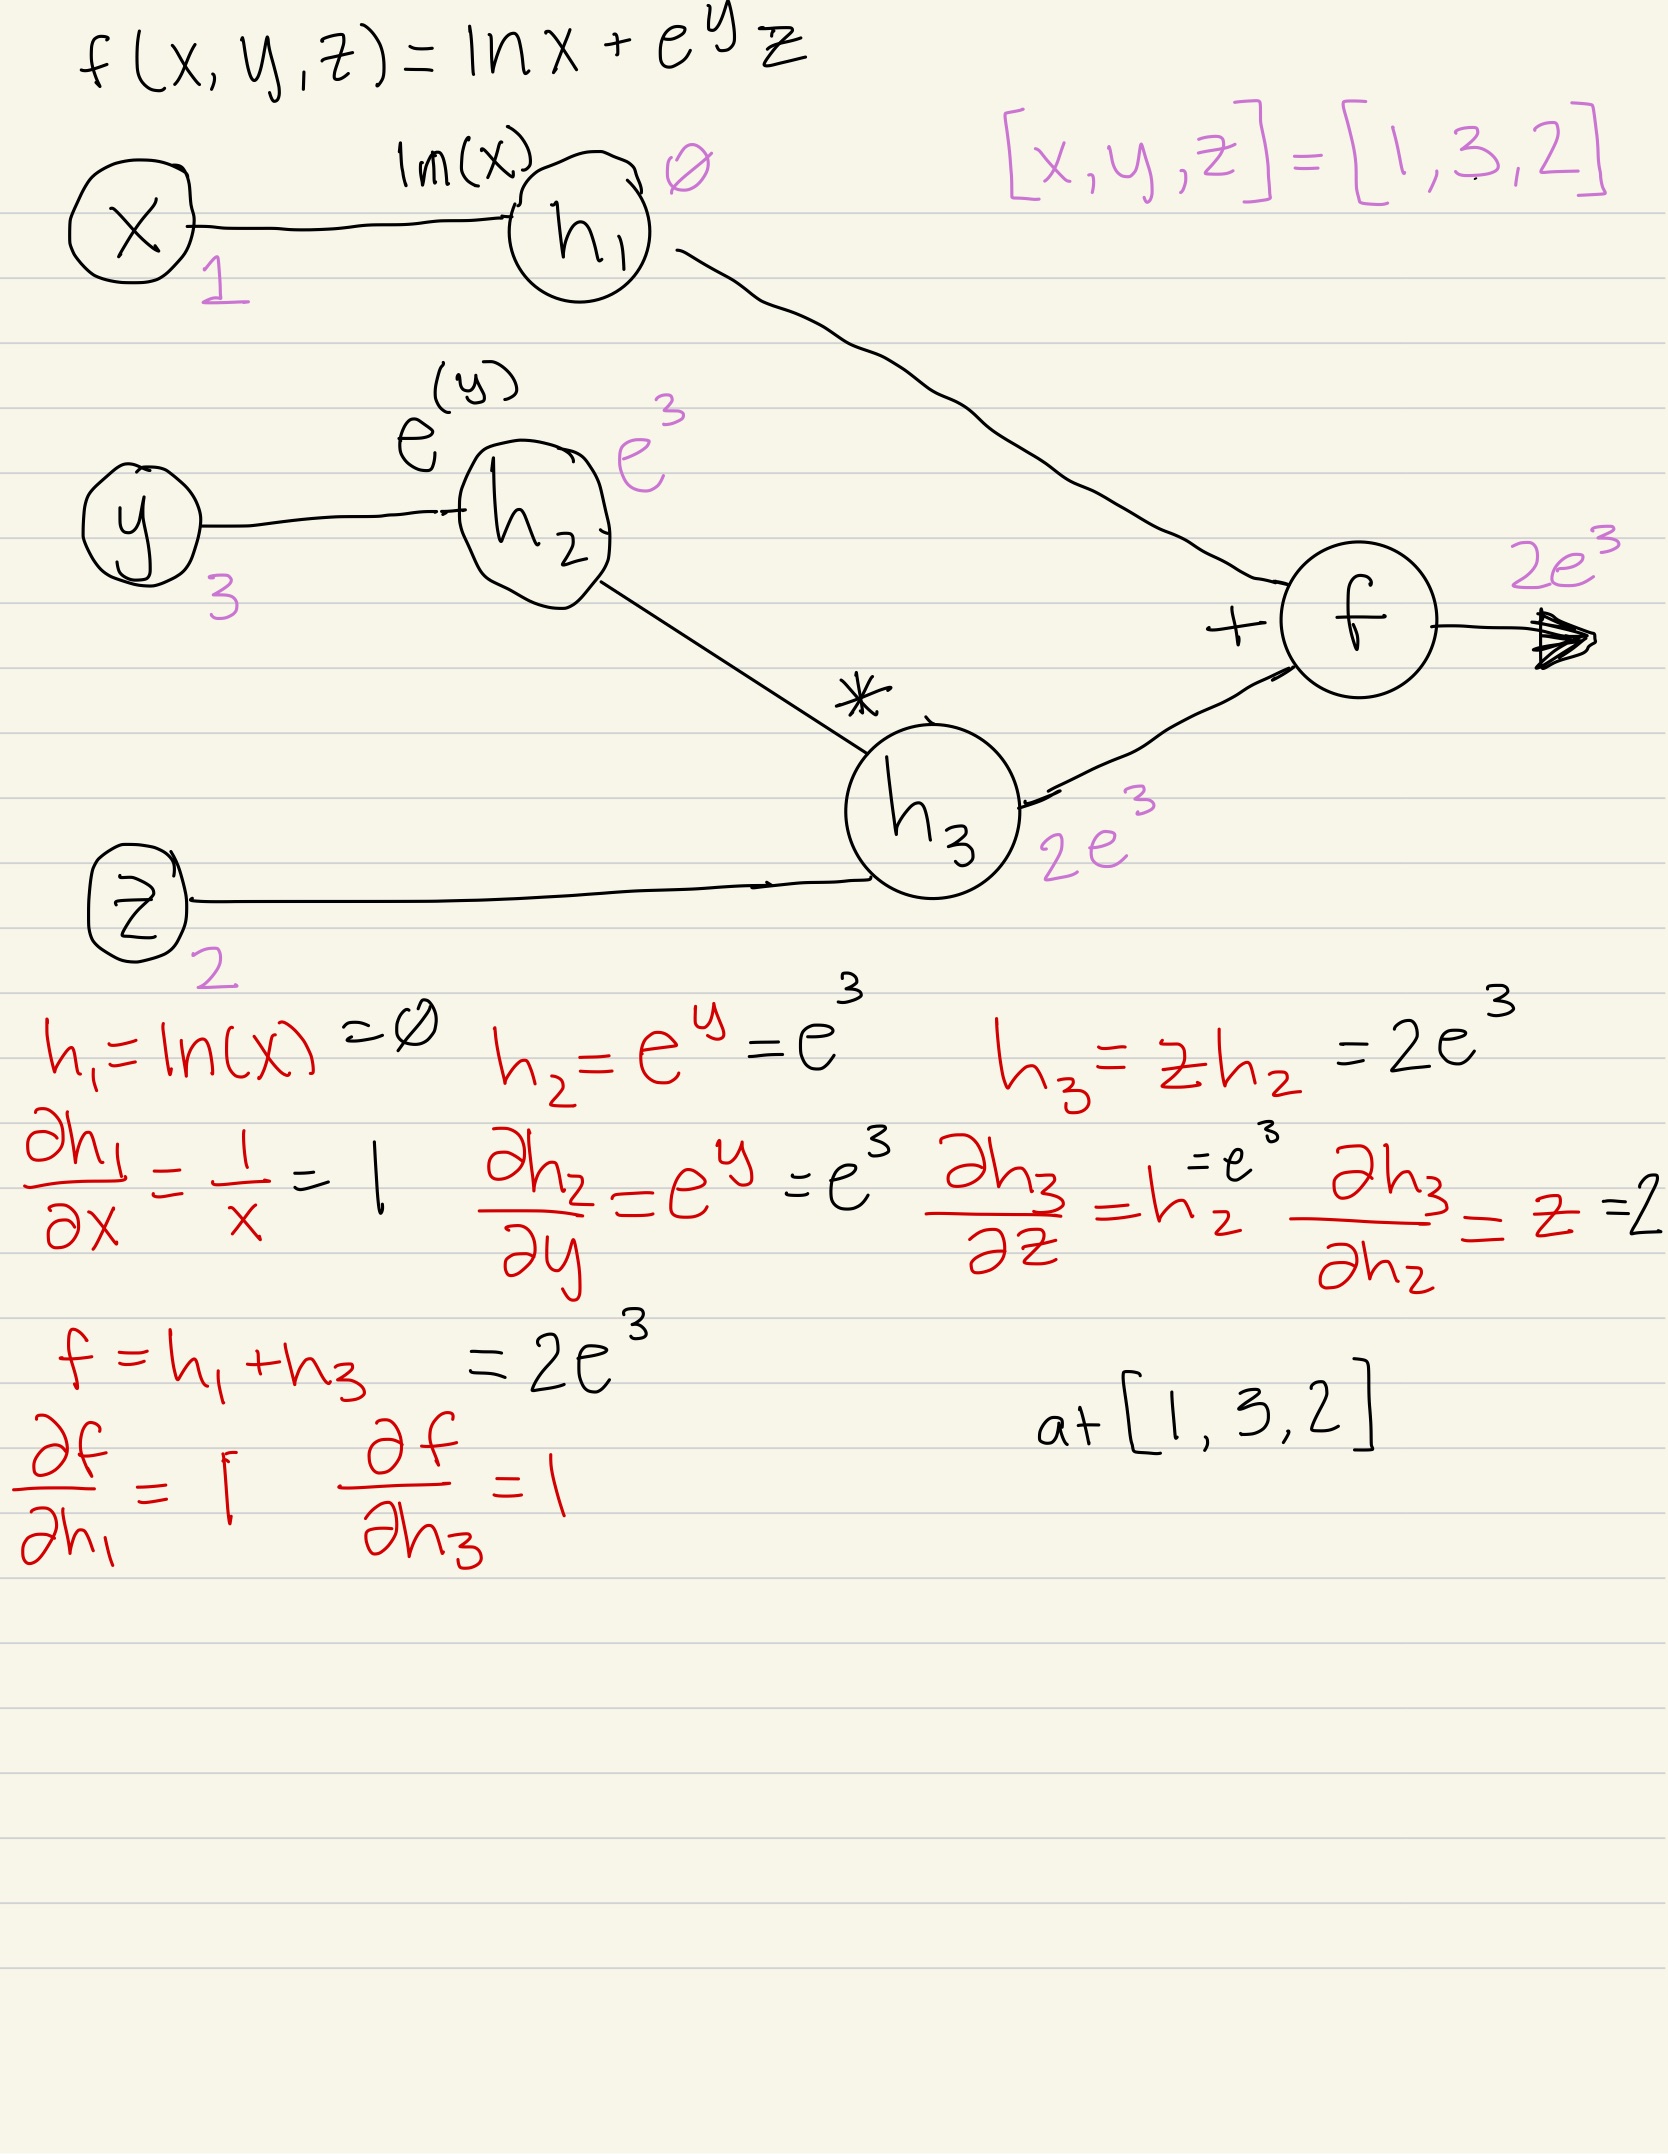 f(x, y, z) = ln x + e^y z
[x, y, z] = [1, 3, 2]
ln(x)
x
1
h₁
∅
e^(y)
y
3
h₂
e³
*
h₃
2e³
+
f
2e³
z
2
h₁ = ln(x) = ∅ h₂ = e^y = e³ h₃ = zh₂ = 2e³
∂h₁/∂x = 1/x = 1 ∂h₂/∂y = e^y = e³ ∂h₃/∂z = h₂ = e³ ∂h₃/∂h₂ = z = 2
f = h₁ + h₃ = 2e³
at [1, 3, 2]
∂f/∂h₁ = 1 ∂f/∂h₃ = 1